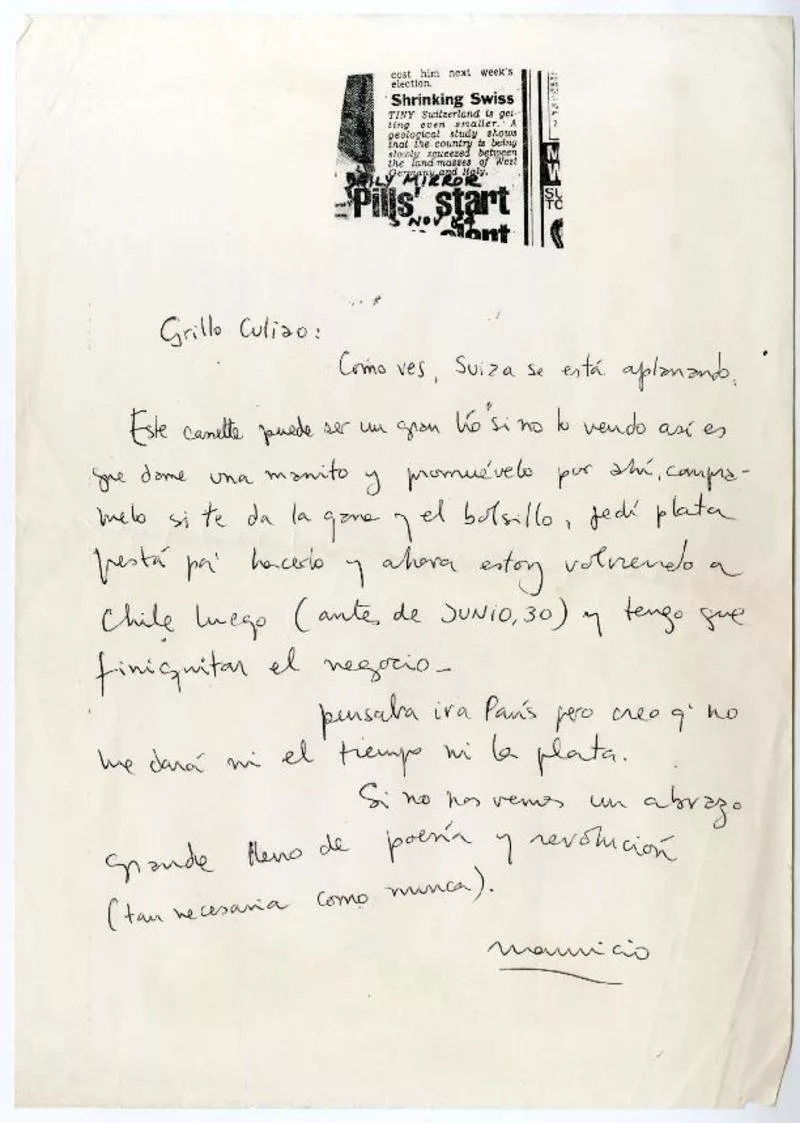 cost him next week's
election.
Shrinking Swiss
TINY Switzerland is get-
ting even smaller. A
geological study shows
that the country is being
slowly squeezed between
the land masses of West
Germany and Italy.
DAILY MIRROR
'Pills' start
5 NOV 84
M
W
SU
TC
Grillo Culiao:
Como ves, Suiza se está aplanando.
Este casette puede ser un gran lío si no lo vendo así es
que dame una manito y promuévelo por ahí, compra-
melo si te da la gana y el bolsillo, pedí plata
prestá pa' hacerlo y ahora estoy volviendo a
Chile luego (antes de JUNIO, 30) y tengo que
finiquitar el negocio_
pensaba ir a París pero creo q' no
me dará ni el tiempo ni la plata.
Si no nos vemos un abrazo
grande lleno de poesía y revolución
(tan necesaria como nunca).
mauricio